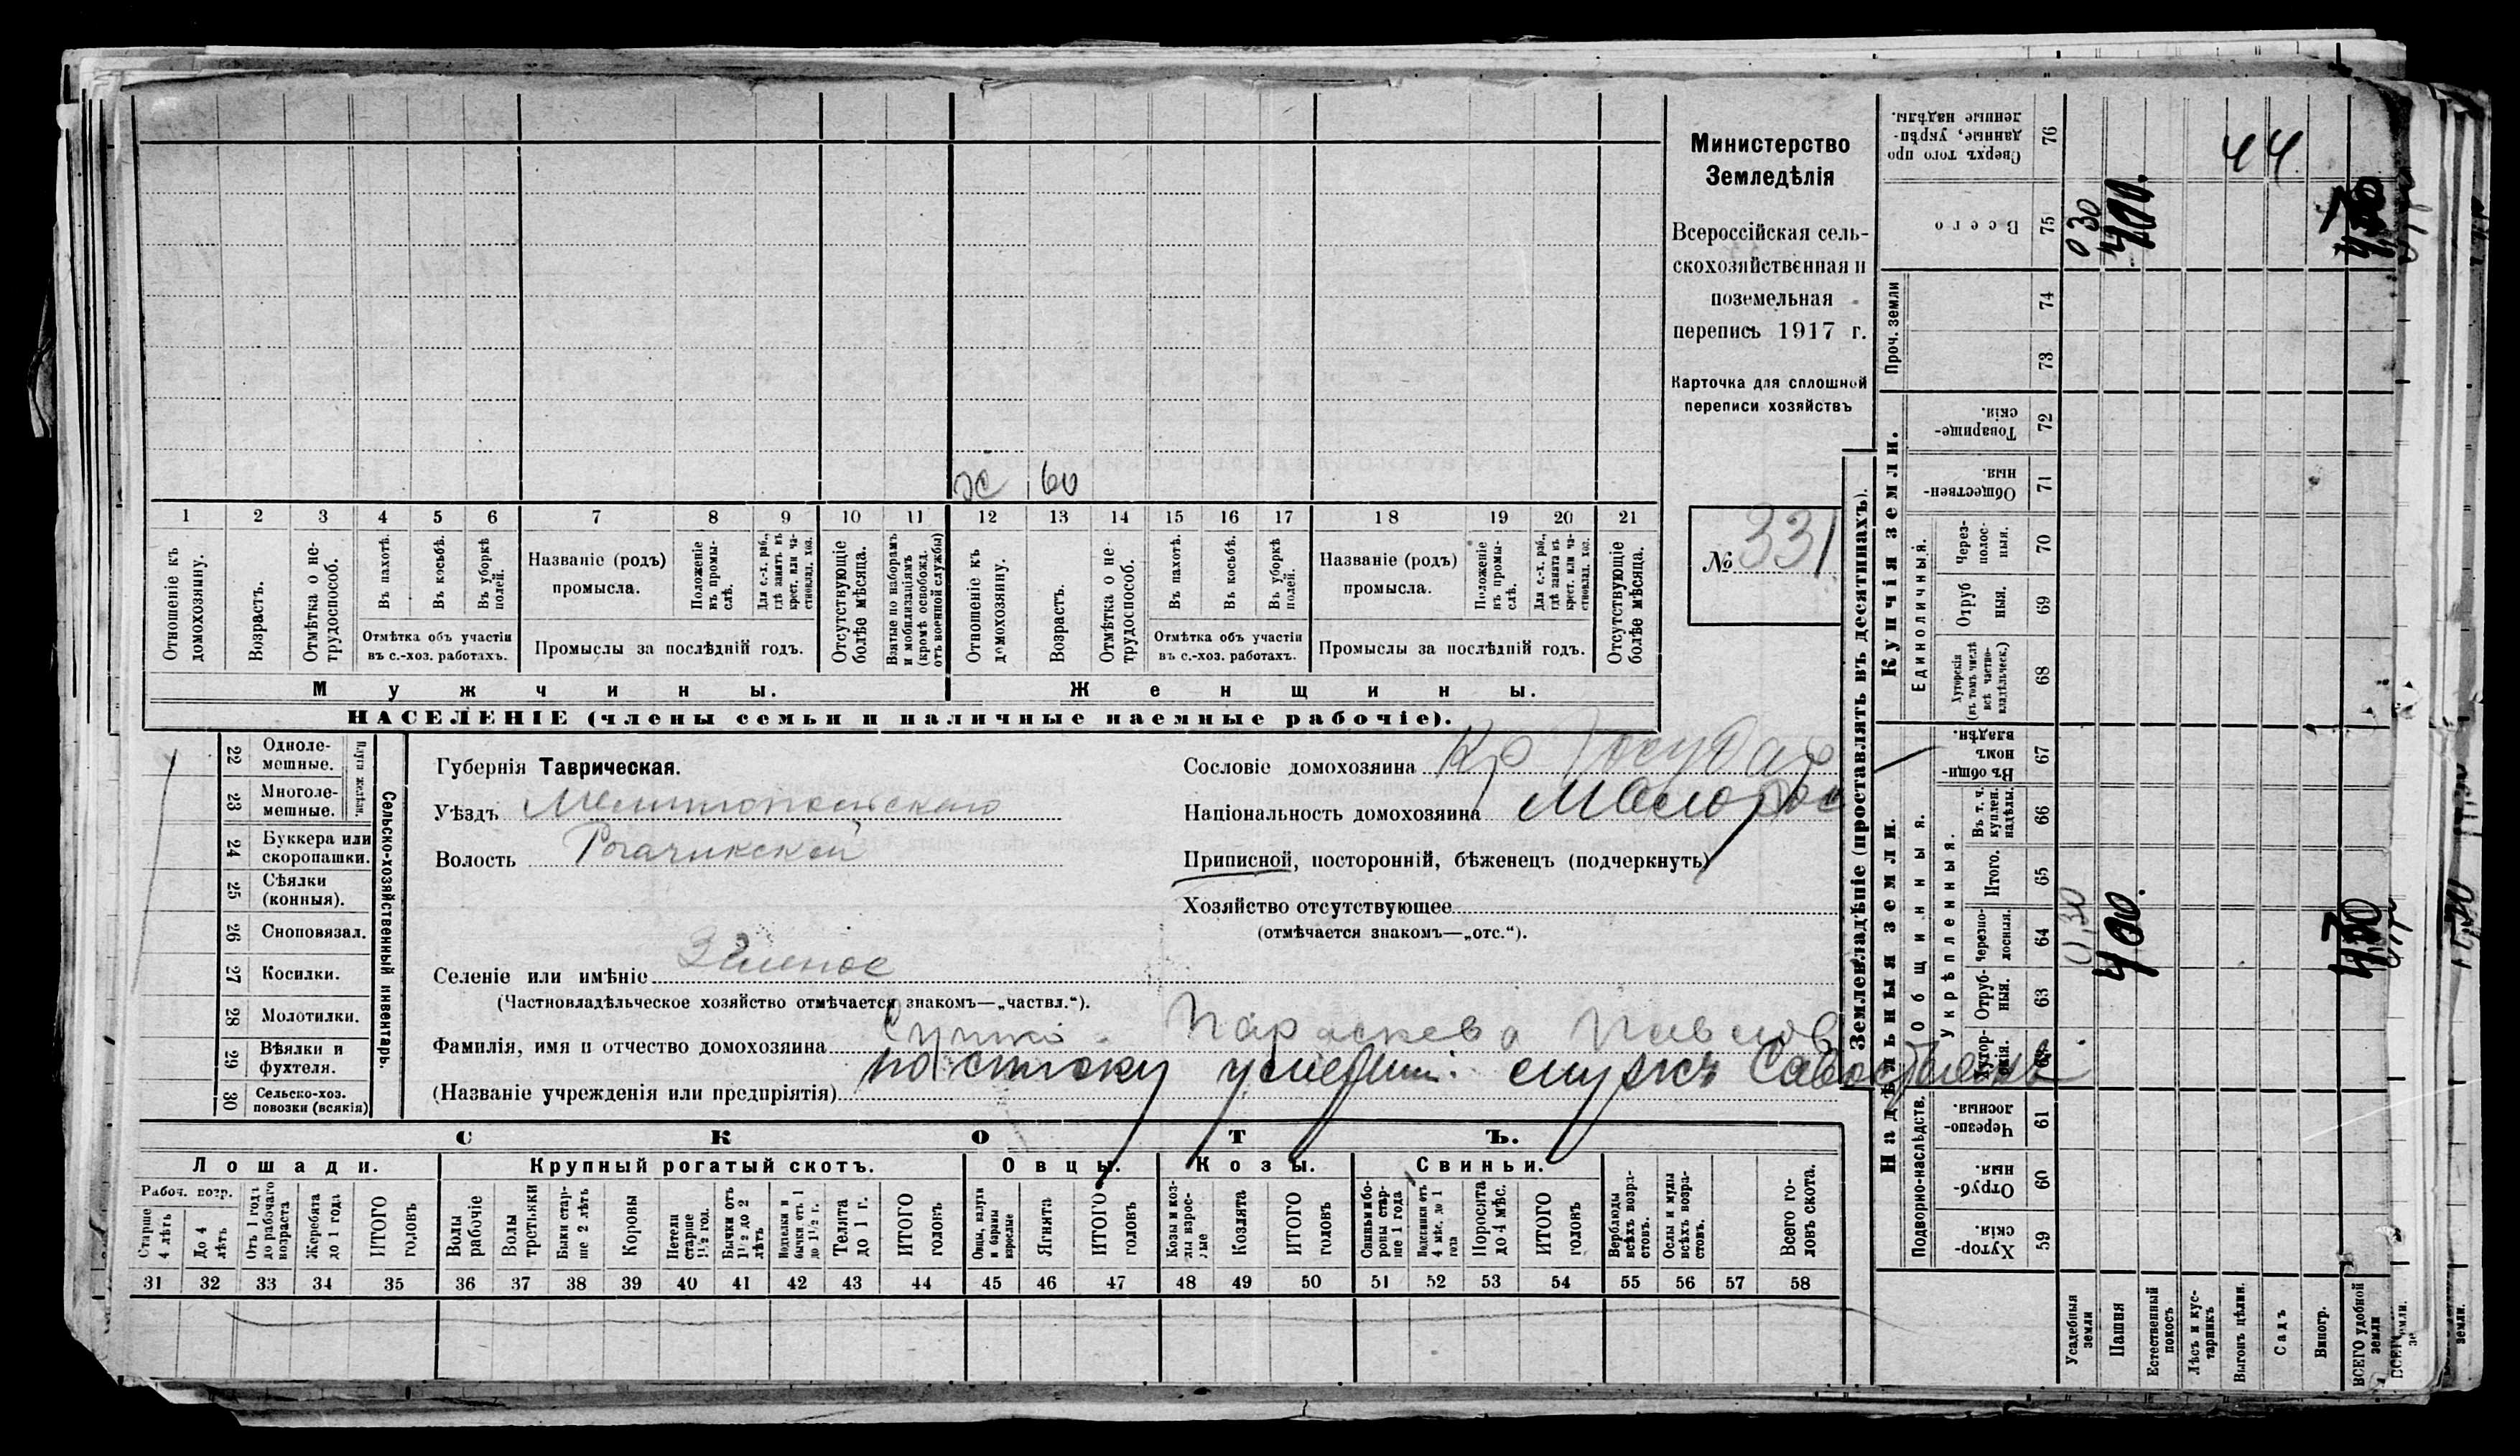 Министерство
Земледѣлія
Всероссійская сель-
скохозяйственная и
поземельная
перепись 1917 г.
Карточка для сплошной
переписи хозяйствъ
№ 331
ж 60
1 2 3 4 5 6 7 8 9 10 11 12 13 14 15 16 17 18 19 20 21
Отношеніе къ домохозяину.
Возрастъ.
Отмѣтка о не-трудоспособ.
Въ пахотѣ.
Въ косьбѣ.
Въ уборкѣ полей.
Отмѣтка объ участіи въ с.-хоз. работахъ.
Названіе (родъ) промысла.
Положеніе въ промы-слѣ.
Для с.-х. раб., гдѣ занятъ въ крест. или ча-стновлад. хоз.
Промыслы за послѣдній годъ.
Отсутствующіе болѣе мѣсяца.
Взятые по наборамъ и мобилизаціямъ (кромѣ освобожд. отъ военной службы)
Отношеніе къ домохозяину.
Возрастъ.
Отмѣтка о не трудоспособ.
Въ пахотѣ.
Въ косьбѣ.
Въ уборкѣ полей.
Отмѣтка объ участіи въ с.-хоз. работахъ.
Названіе (родъ) промысла.
Положеніе въ промы-слѣ.
Для с.-х. раб., гдѣ занята въ крест. или ча-стновлад. хоз.
Промыслы за послѣдній годъ.
Отсутствующіе болѣе мѣсяца.
Мужчины.
Женщины.
НАСЕЛЕНІЕ (члены семьи и наличные наемные рабочіе).
22 Одноле-мешные.
23 Многоле-мешные.
Плуги желѣзн.
24 Буккера или скоропашки.
25 Сѣялки (конныя).
26 Сноповязал.
27 Косилки.
28 Молотилки.
29 Вѣялки и фухтеля.
30 Сельско-хоз. повозки (всякія)
Сельско-хозяйственный инвентарь.
Губернія Таврическая.
Уѣздъ Мелитопольскаго
Волость Рогачикской
Селеніе или имѣніе Зеленое
(Частновладѣльческое хозяйство отмѣчается знакомъ—„частвл.“).
Сословіе домохозяина Кр Государ
Національность домохозяина Малорос
Приписной, посторонній, бѣженецъ (подчеркнуть)
Хозяйство отсутствующее
(отмѣчается знакомъ—„отс.“).
Фамилія, имя и отчество домохозяина Параскева Павлов
по списку умерш. мужъ
(Названіе учрежденія или предпріятія)
СКОТЪ.
Лошади.
Крупный рогатый скотъ.
Овцы.
Козы.
Свиньи.
Рабоч. возр.
Старше 4 лѣтъ
До 4 лѣтъ
Отъ 1 года до рабочаго возраста
Жеребята до 1 года
ИТОГО головъ
Волы рабочіе
Волы третьяки
Быки стар-ше 2 лѣтъ
Коровы
Нетели старше 1½ год.
Бычки отъ 1½ до 2 лѣтъ
Подтелки и бычки отъ 1 до 1½ г.
Телята до 1 г.
ИТОГО головъ
Овцы, валухи и бараны взрослые
Ягнята
ИТОГО головъ
Козы и коз-лы взрос-лые
Козлята
ИТОГО головъ
Свиньи и бо-ровы стар-ше 1 года
Подсвинки отъ 4 мѣс. до 1 года
Поросята до 4 мѣс.
ИТОГО головъ
Верблюды всѣхъ возра-стовъ.
Ослы и мулы всѣхъ возра-стовъ.
Всего го-ловъ скота.
31 32 33 34 35 36 37 38 39 40 41 42 43 44 45 46 47 48 49 50 51 52 53 54 55 56 57 58
Землевладѣніе (проставлять въ десятинахъ).
Надѣльныя земли.
Купчія земли.
Проч. земли
Подворно-наслѣдств.
Общинныя.
Укрѣпленныя.
Единоличныя.
Сверхъ того про данные, укрѣп-ленные надѣлы. 76
Всего 75
74
73
Товарище-скія. 72
Обществен-ныя. 71
Через-полос-ныя. 70
Отруб ныя. 69
Хуторскія (въ томъ числѣ всѣ частно-владѣльческ.) 68
Въ общи-номъ владѣн. 67
Въ т. ч. куплен. надѣлы. 66
Итого. 65
Черезпо-лосныя. 64
Отруб-ныя. 63
Хутор-скія.
Черезпо-лосныя. 61
Отруб-ныя. 60
Хутор-скія. 59
Усадебныя земли
Пашня
Естественный покосъ
Лѣсъ и кус-тарникъ
Выгонъ цѣлин.
Садъ
Виногр.
ВСЕГО удобной земли
0 30
400.
44
0,30
400.
земли.